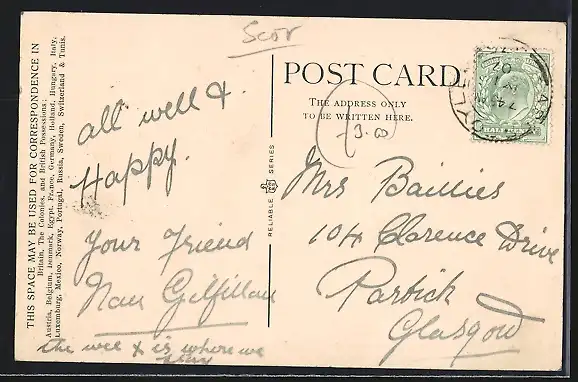 Scot
THIS SPACE MAY BE USED FOR CORRESPONDENCE IN
Britain, The Colonies, and British Possessions;
Austria, Belgium, Denmark, Egypt, France, Germany, Holland, Hungary, Italy,
Luxemburg, Mexico, Norway, Portugal, Russia, Sweden, Switzerland & Tunis.
all well &
Happy.
Your Friend
Nan Gilfillan
the wee x is where we
RELIABLE SERIES
POST CARD
THE ADDRESS ONLY
TO BE WRITTEN HERE.
73.00
HALF PENNY
Mrs Baillies
104 Clarence Drive
Partick
Glasgow